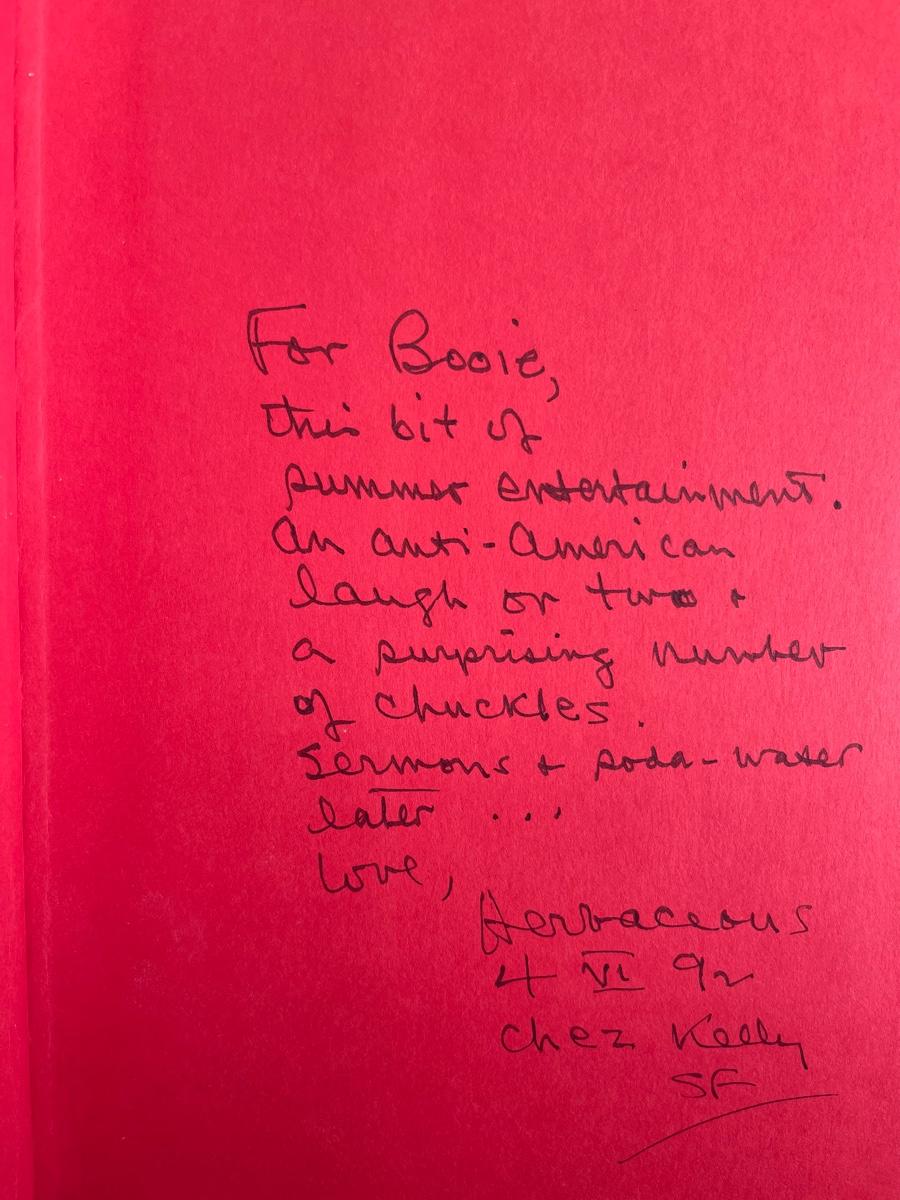 For Booie,
this bit of
summer entertainment.
An anti-American
laugh or two +
a surprising number
of chuckles.
Sermons + soda-water
later ...
Love,
Herbaceous
4 VI 92
chez Kelly
SF